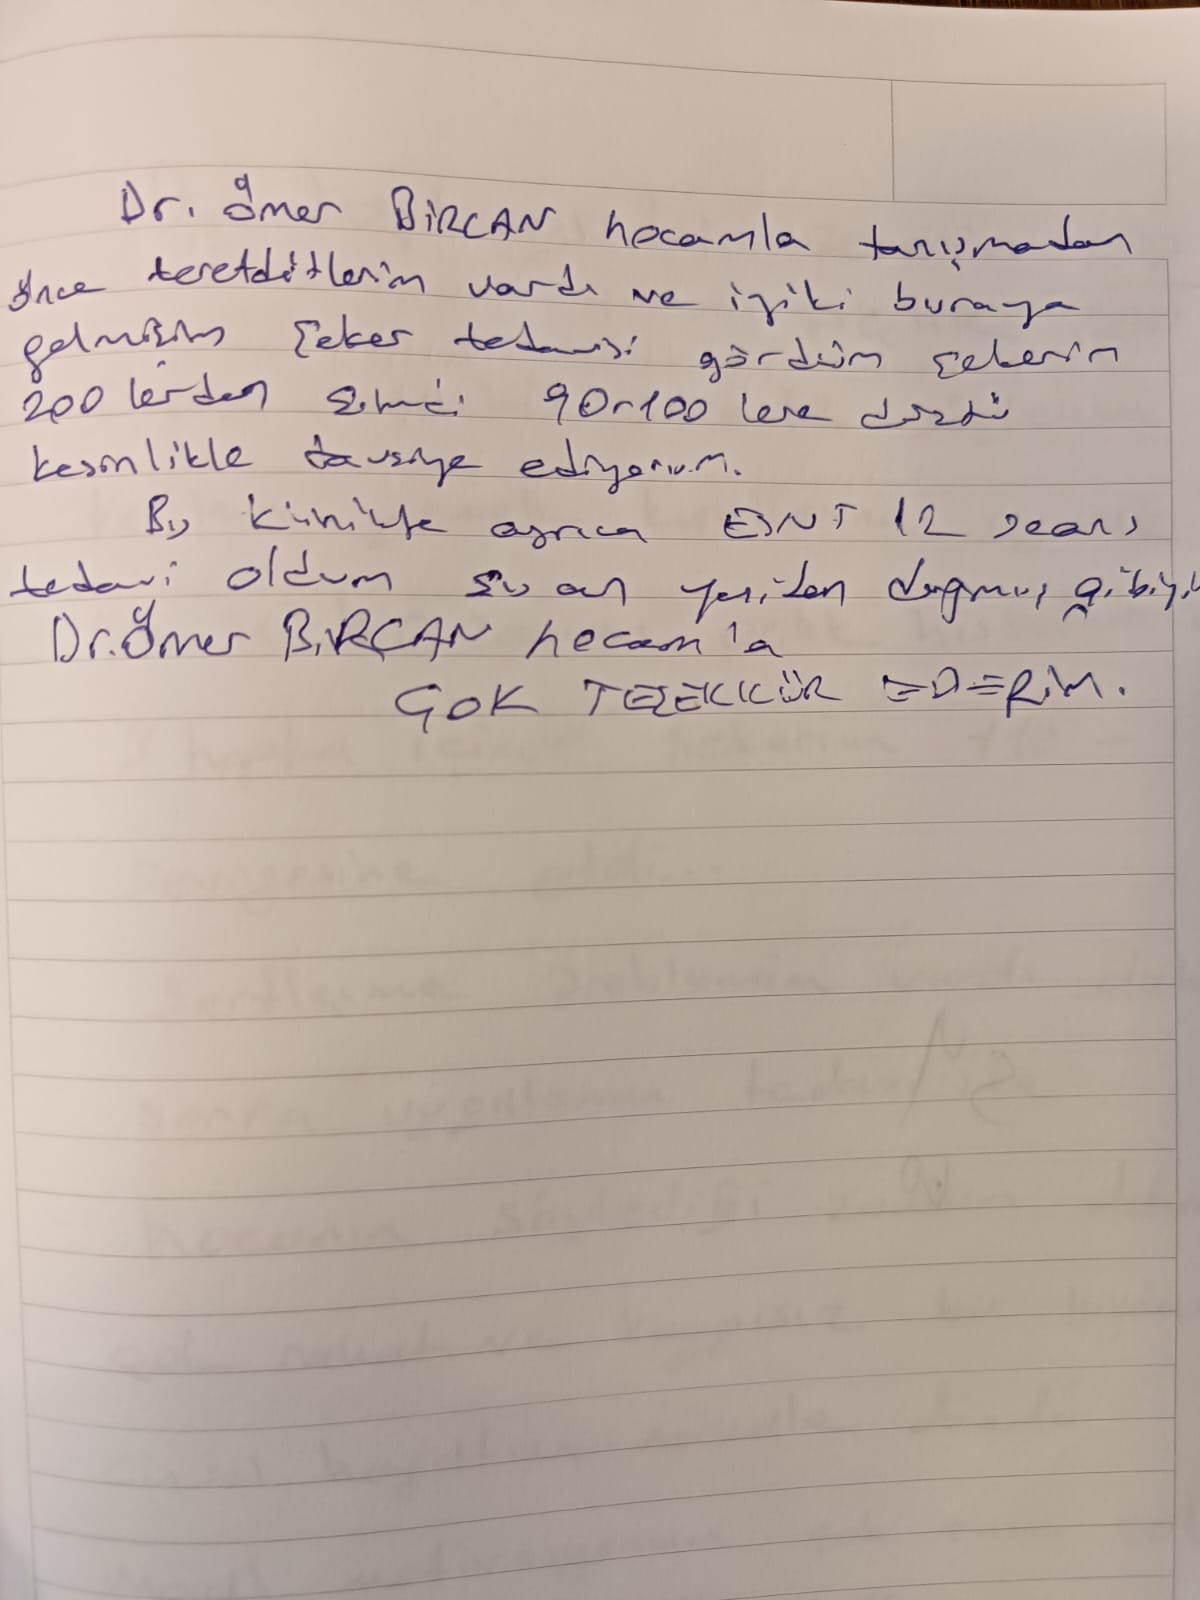 Dr. Ömer BİRCAN hocamla tanışmadan
önce teretditlerim vardı ve iyiki buraya
gelmişim şeker tedavisi gördüm şekerim
200 lerden şimdi 90-100 lere düştü
kesinlikle tavsiye ediyorum.
Bu klinikte ayrıca 12 seans
tedavi oldum şu an yeniden doğmuş gibiyim
Dr. Ömer BİRCAN hocam'a
ÇOK TEŞEKKÜR EDERİM.